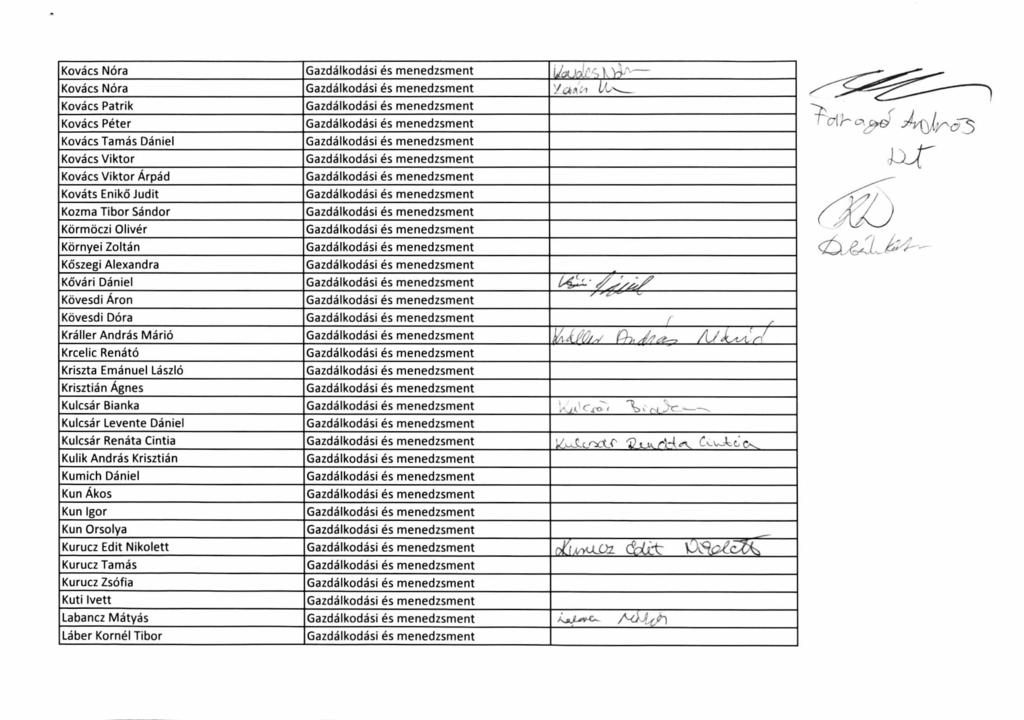 Kovács Nóra Gazdálkodási és menedzsment Kovács Nóra
Kovács Nóra Gazdálkodási és menedzsment Kovács
Kovács Patrik Gazdálkodási és menedzsment
Kovács Péter Gazdálkodási és menedzsment
Kovács Tamás Dániel Gazdálkodási és menedzsment
Kovács Viktor Gazdálkodási és menedzsment
Kovács Viktor Árpád Gazdálkodási és menedzsment
Kováts Enikő Judit Gazdálkodási és menedzsment
Kozma Tibor Sándor Gazdálkodási és menedzsment
Körmöczi Olivér Gazdálkodási és menedzsment
Környei Zoltán Gazdálkodási és menedzsment
Kőszegi Alexandra Gazdálkodási és menedzsment
Kővári Dániel Gazdálkodási és menedzsment Dániel
Kövesdi Áron Gazdálkodási és menedzsment
Kövesdi Dóra Gazdálkodási és menedzsment
Králler András Márió Gazdálkodási és menedzsment Králler András Márió
Krcelic Renátó Gazdálkodási és menedzsment
Kriszta Emánuel László Gazdálkodási és menedzsment
Krisztián Ágnes Gazdálkodási és menedzsment
Kulcsár Bianka Gazdálkodási és menedzsment Kulcsár Bianka
Kulcsár Levente Dániel Gazdálkodási és menedzsment
Kulcsár Renáta Cintia Gazdálkodási és menedzsment Kulcsár Renáta Cintia
Kulik András Krisztián Gazdálkodási és menedzsment
Kumich Dániel Gazdálkodási és menedzsment
Kun Ákos Gazdálkodási és menedzsment
Kun Igor Gazdálkodási és menedzsment
Kun Orsolya Gazdálkodási és menedzsment
Kurucz Edit Nikolett Gazdálkodási és menedzsment Kurucz Edit Nikolett
Kurucz Tamás Gazdálkodási és menedzsment
Kurucz Zsófia Gazdálkodási és menedzsment
Kuti Ivett Gazdálkodási és menedzsment
Labancz Mátyás Gazdálkodási és menedzsment Mátyás
Láber Kornél Tibor Gazdálkodási és menedzsment
Faragó András